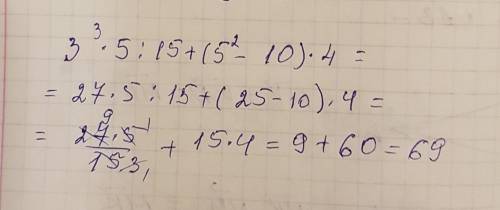 3³ · 5 : 15 + (5² - 10) · 4 =
= 27 · 5 : 15 + (25 - 10) · 4 =
= 9 27 · 5 1 / 15 3 1 + 15 · 4 = 9 + 60 = 69